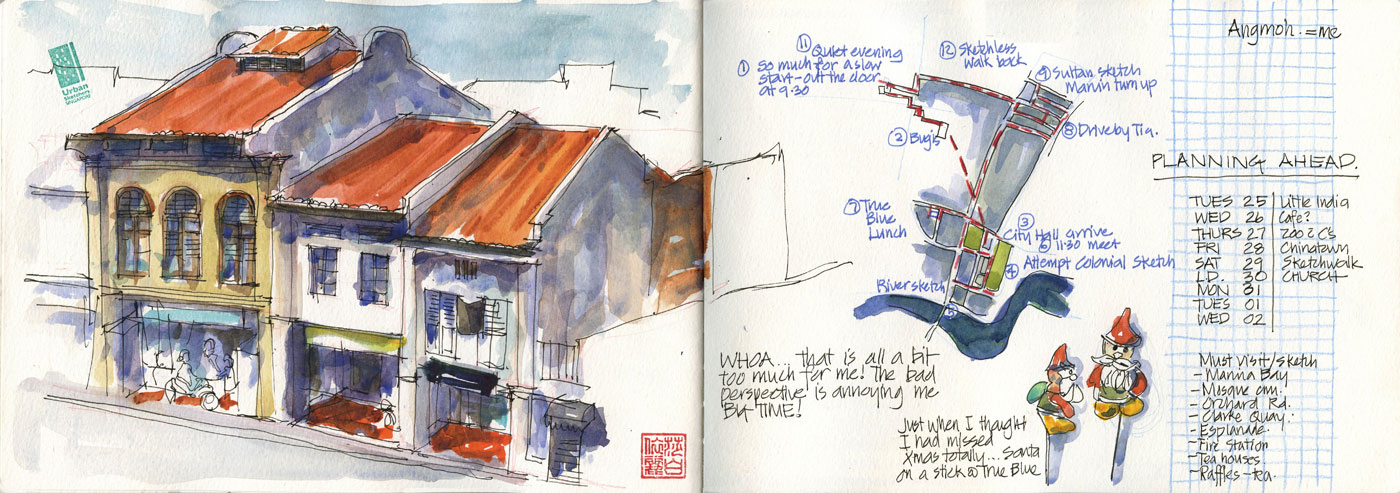 Urban
Sketchers
⑪ Quiet evening
① So much for a slow
start-out the door
at 9.30
⑫ Sketchless
walk back
⑨ Sultan sketch
Marvin turn up
② Bugis
⑧ Driveby Tia.
⑦ True
Blue
Lunch
③
City Hall arrive
⑥ 11:30 meet
④ Attempt Colonial Sketch
River sketch
⑤
WHOA... that is all a bit
too much for me! The bad
perspective is annoying me
BIG TIME!
Just when I thought
I had missed
Xmas totally... Santa
on a stick @ True Blue
Angmoh. = me
PLANNING AHEAD.
TUES 25 Little India
WED 26 Cafe?
THURS 27 Zoo 2 C's
FRI 28 Chinatown
SAT 29 Sketchwalk
I.D. 30 CHURCH
MON 31
TUES 01
WED 02
Must Visit/Sketch
- Marina Bay
- Mosque
- Orchard Rd.
- Clarke Quay.
- Esplanade.
- Fire Station
- Tea houses
- Raffles - tea.